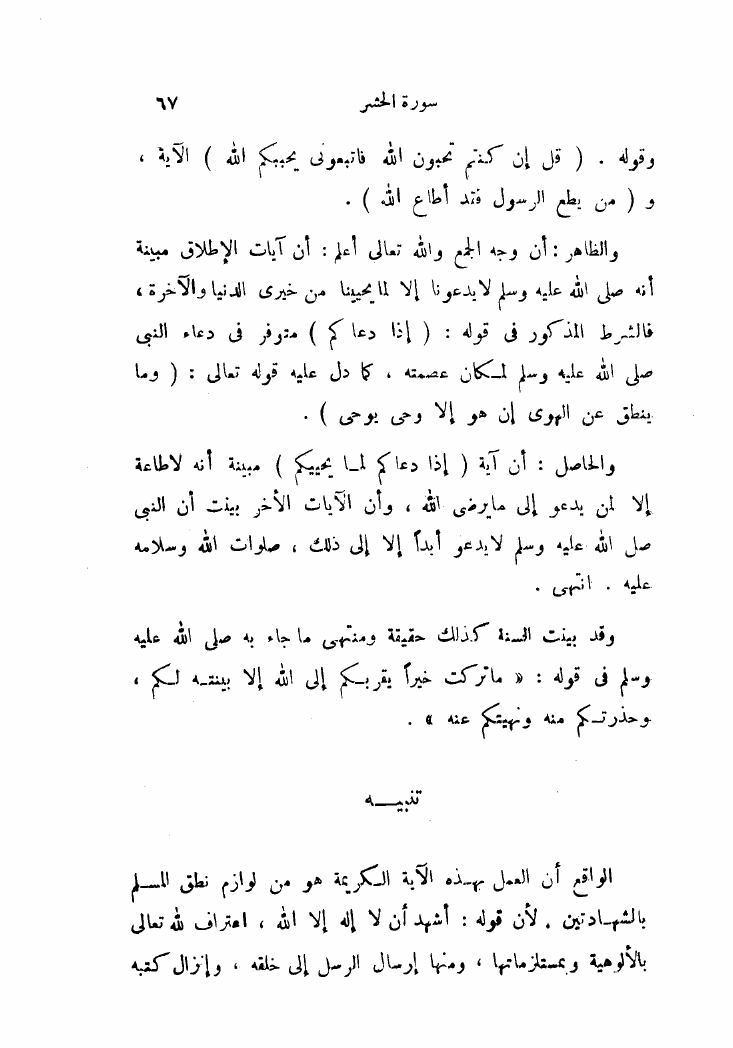 سورة الحشر ٦٧
وقوله . ( قل إن كنتم تحبون الله فاتبعونى يحببكم الله ) الآية ،
و ( من يطع الرسول فقد أطاع الله ) .
والظاهر : أن وجه الجمع والله تعالى أعلم : أن آيات الإطلاق مبينة
أنه صلى الله عليه وسلم لايدعونا إلا لما يحيينا من خيرى الدنيا والآخرة ،
فالشرط المذكور فى قوله : ( إذا دعاكم ) متوفر فى دعاء النبى
صلى الله عليه وسلم لمكان عصمته ، كما دل عليه قوله تعالى : ( وما
ينطق عن الهوى إن هو إلا وحى يوحى ) .
والحاصل : أن آية ( إذا دعاكم لما يحييكم ) مبينة أنه لاطاعة
إلا لمن يدعو إلى مايرضى الله ، وأن الآيات الأخر بينت أن النبى
صل الله عليه وسلم لايدعو أبداً إلا إلى ذلك ، صلوات الله وسلامه
عليه . انتهى .
وقد بينت السنة كذلك حقيقة ومنتهى ما جاء به صلى الله عليه
وسلم فى قوله : « ماتركت خيراً يقربكم إلى الله إلا بينته لكم ،
وحذرتكم منه ونهيتكم عنه » .
تنبيه
الواقع أن العمل بهذه الآية الكريمة هو من لوازم نطق المسلم
بالشهادتين . لأن قوله : أشهد أن لا إله إلا الله ، اعتراف لله تعالى
بالألوهية وبمستلزماتها ، ومنها إرسال الرسل إلى خلقه ، وإنزال كتبه